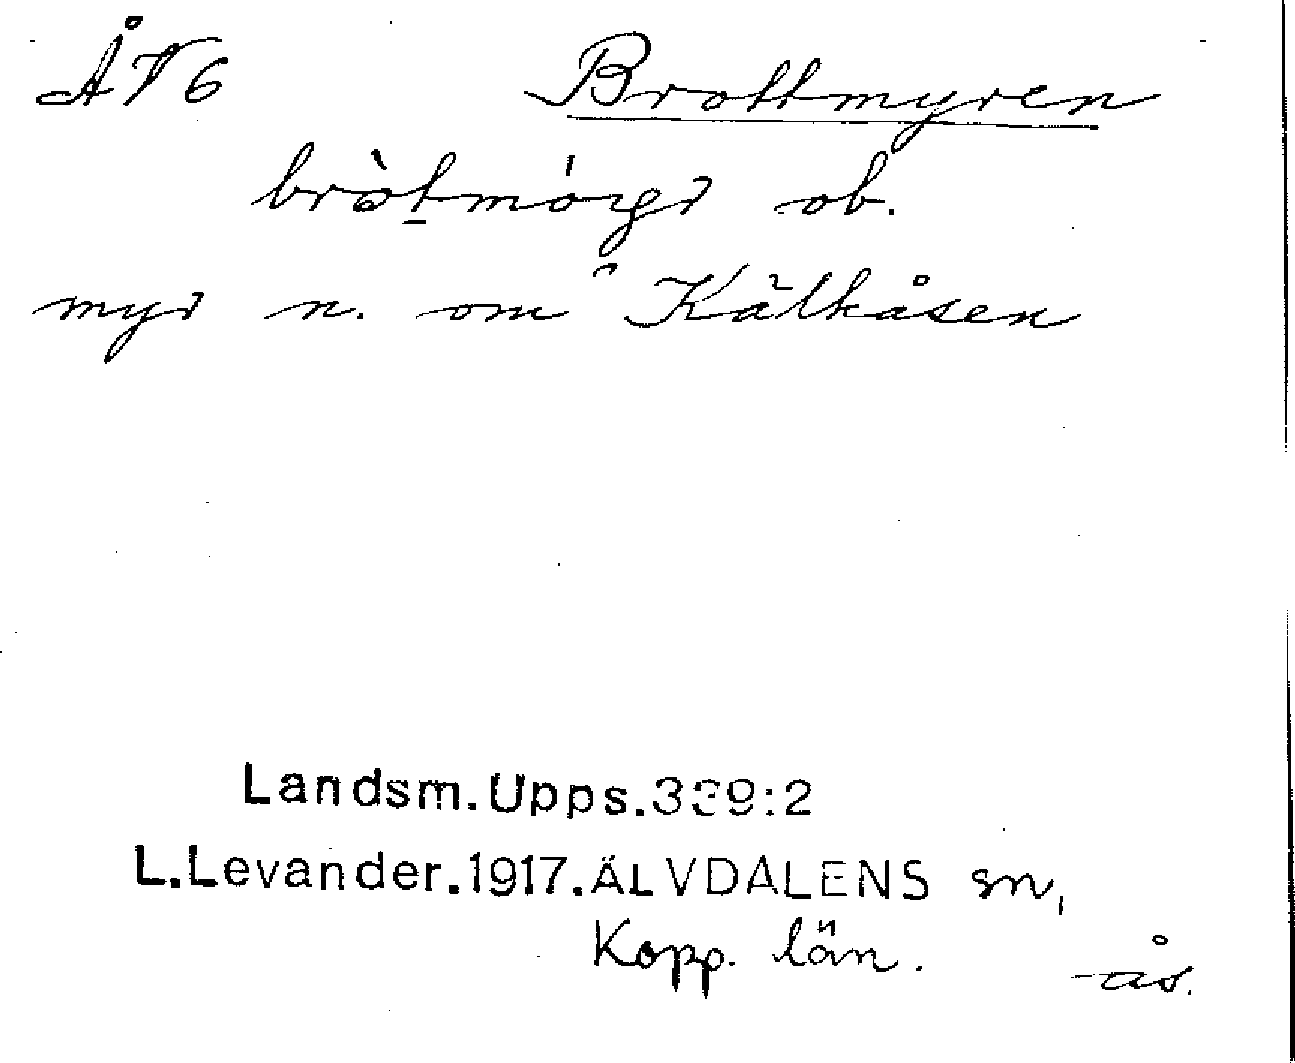 ÅV6 Brottmyren
bròt̠mö́yr ob.
myr n. om Kälkåsen
Landsm.Upps.339:2
L.Levander.1917.ÄLVDALENS sn,
Kopp. län.
-ås.